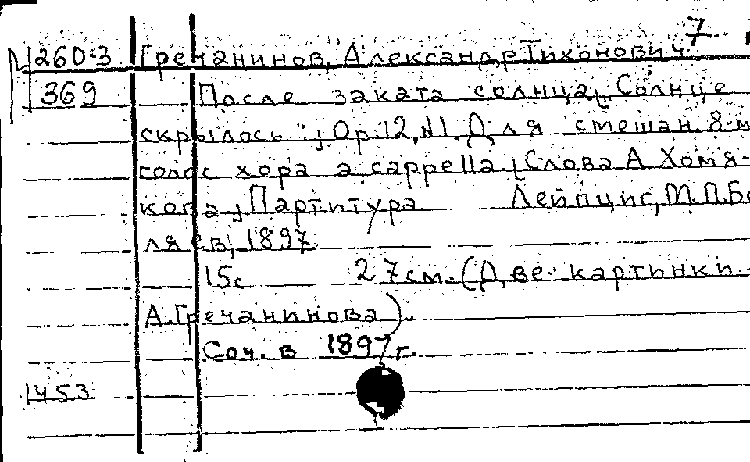 7
1260-3 Гречанинов, Александр Тихонович
369 После заката солнца („Солнце
скрылось"), Ор.12, №1. Для смешан. 8-м
голос хора a cappella, Слова А. Хомя-
кова, Партитура Лейпциг, М.П.Бе
ляев, 1897
15с 27см. (Две картинки
А. Гречанинова).
Соч. в 1897г.
1453